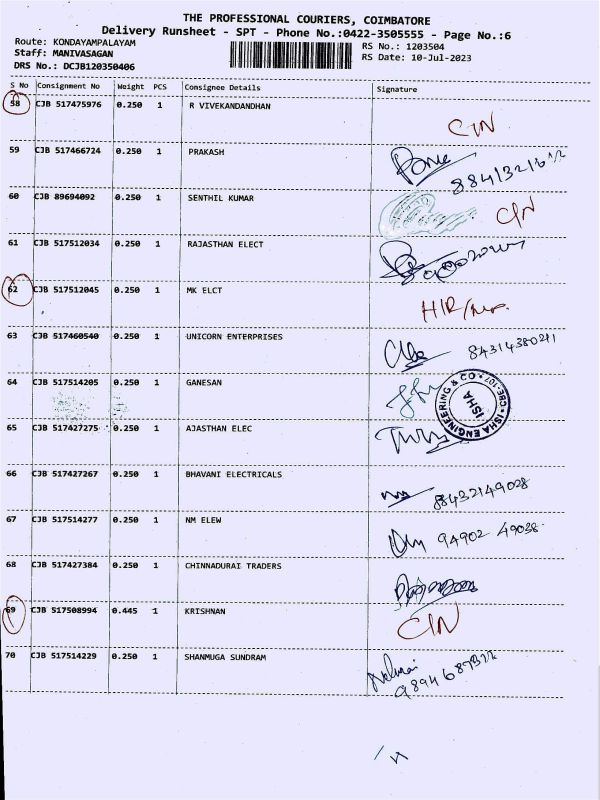 THE PROFESSIONAL COURIERS, COIMBATORE
Delivery Runsheet - SPT - Phone No.:0422-3505555 - Page No.:6
Route: KONDAYAMPALAYAM
RS No.: 1203504
Staff: MANIVASAGAN
RS Date: 10-Jul-2023
DRS No.: DCJB120350406
S No Consignment No Weight PCS Consignee Details Signature
58 CJB 517475976 0.250 1 R VIVEKANDANDHAN
CIN
59 CJB 517466724 0.250 1 PRAKASH
60 CJB 89694092 0.250 1 SENTHIL KUMAR
CIN
61 CJB 517512034 0.250 1 RAJASTHAN ELECT
62 CJB 517512045 0.250 1 MK ELCT
63 CJB 517460540 0.250 1 UNICORN ENTERPRISES
84314380211
64 CJB 517514205 0.250 1 GANESAN
ISHA ENGINEERING & CO * CBE-107 *
ISHA
65 CJB 517427275 0.250 1 AJASTHAN ELEC
66 CJB 517427267 0.250 1 BHAVANI ELECTRICALS
88432149028
67 CJB 517514277 0.250 1 NM ELEW
94902 49038
68 CJB 517427384 0.250 1 CHINNADURAI TRADERS
69 CJB 517508994 0.445 1 KRISHNAN
CIN
70 CJB 517514229 0.250 1 SHANMUGA SUNDRAM